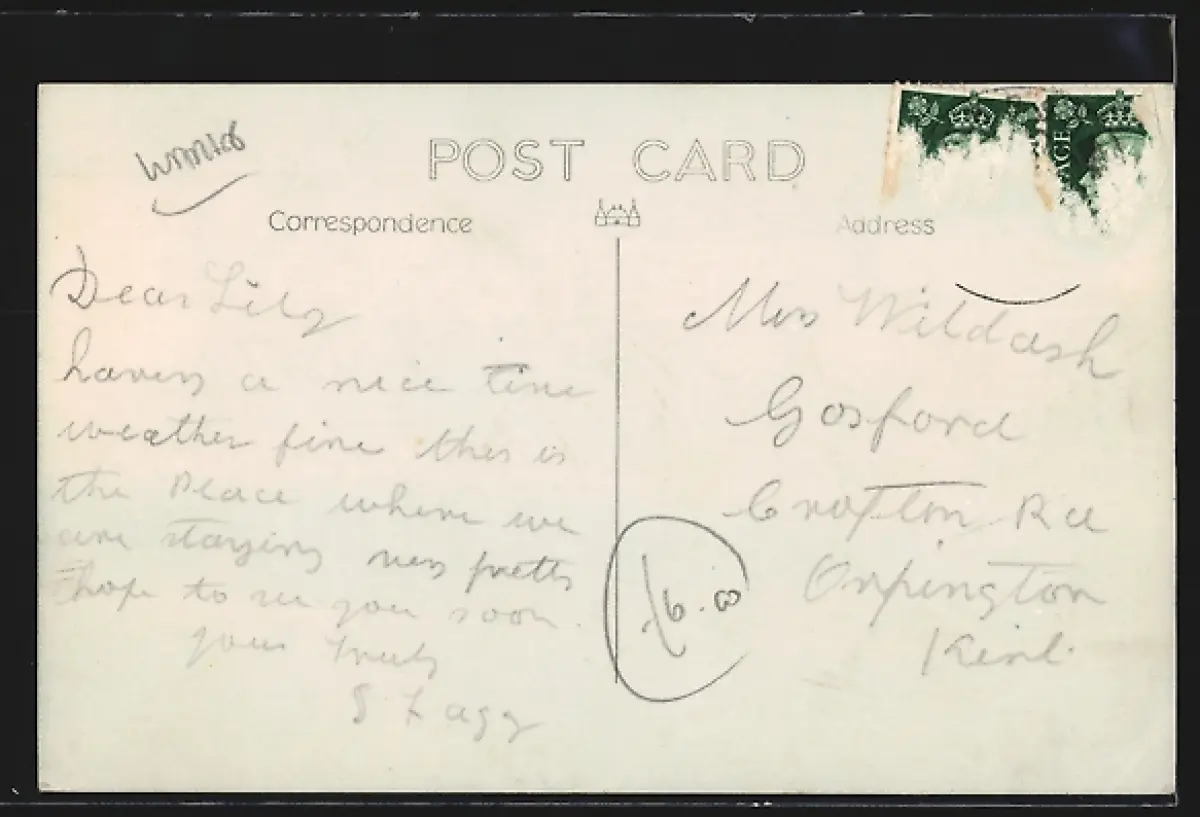 POST CARD
Correspondence
Address
Dear Lily
having a nice time
weather fine this is
the Place where we
are staying very pretty
hope to see you soon
yours truly
S Fagg
Miss Wildash
Gosford
Crofton Rd
Orpington
Kent
AGE